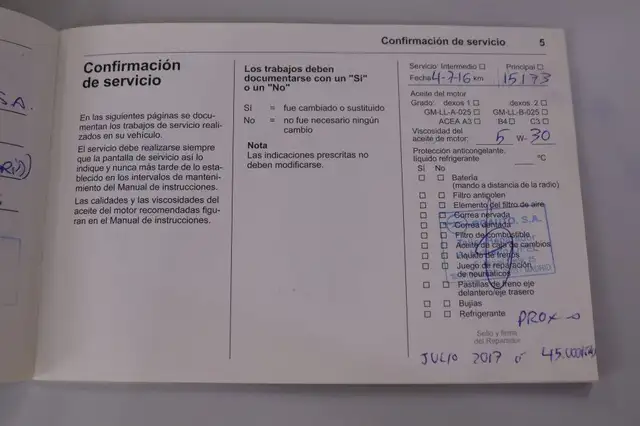 Confirmación de servicio 5
Confirmación
de servicio
En las siguientes páginas se docu-
mentan los trabajos de servicio reali-
zados en su vehículo.
El servicio debe realizarse siempre
que la pantalla de servicio así lo
indique y nunca más tarde de lo esta-
blecido en los intervalos de manteni-
miento del Manual de instrucciones.
Las calidades y las viscosidades del
aceite del motor recomendadas figu-
ran en el Manual de instrucciones.
Los trabajos deben
documentarse con un "Sí"
o un "No"
Sí = fue cambiado o sustituido
No = no fue necesario ningún
cambio
Nota
Las indicaciones prescritas no
deben modificarse.
Servicio: Intermedio ☐ Principal ☐
Fecha 4-7-16 km 15173
Aceite del motor
Grado: dexos 1 ☐ dexos 2 ☐
GM-LL-A-025 ☐ GM-LL-B-025 ☐
ACEA A3 ☐ B4 ☐ C3 ☐
Viscosidad del
aceite de motor: 5 W- 30
Protección anticongelante,
líquido refrigerante ____ °C
Sí No
☐ ☐ Batería
(mando a distancia de la radio)
☐ ☐ Filtro antipolen
☐ ☐ Elemento del filtro de aire
☐ ☐ Correa nervada
☐ ☐ Correa dentada
☐ ☐ Filtro de combustible
☐ ☐ Aceite de caja de cambios
☐ ☐ Líquido de frenos
☐ ☐ Juego de reparación
de neumáticos
☐ ☐ Pastillas de freno eje
delantero/eje trasero
☐ ☐ Bujías
☐ ☐ Refrigerante
PROX
Sello y firma
del Reparador
JULIO 2017 45.000
S.A.